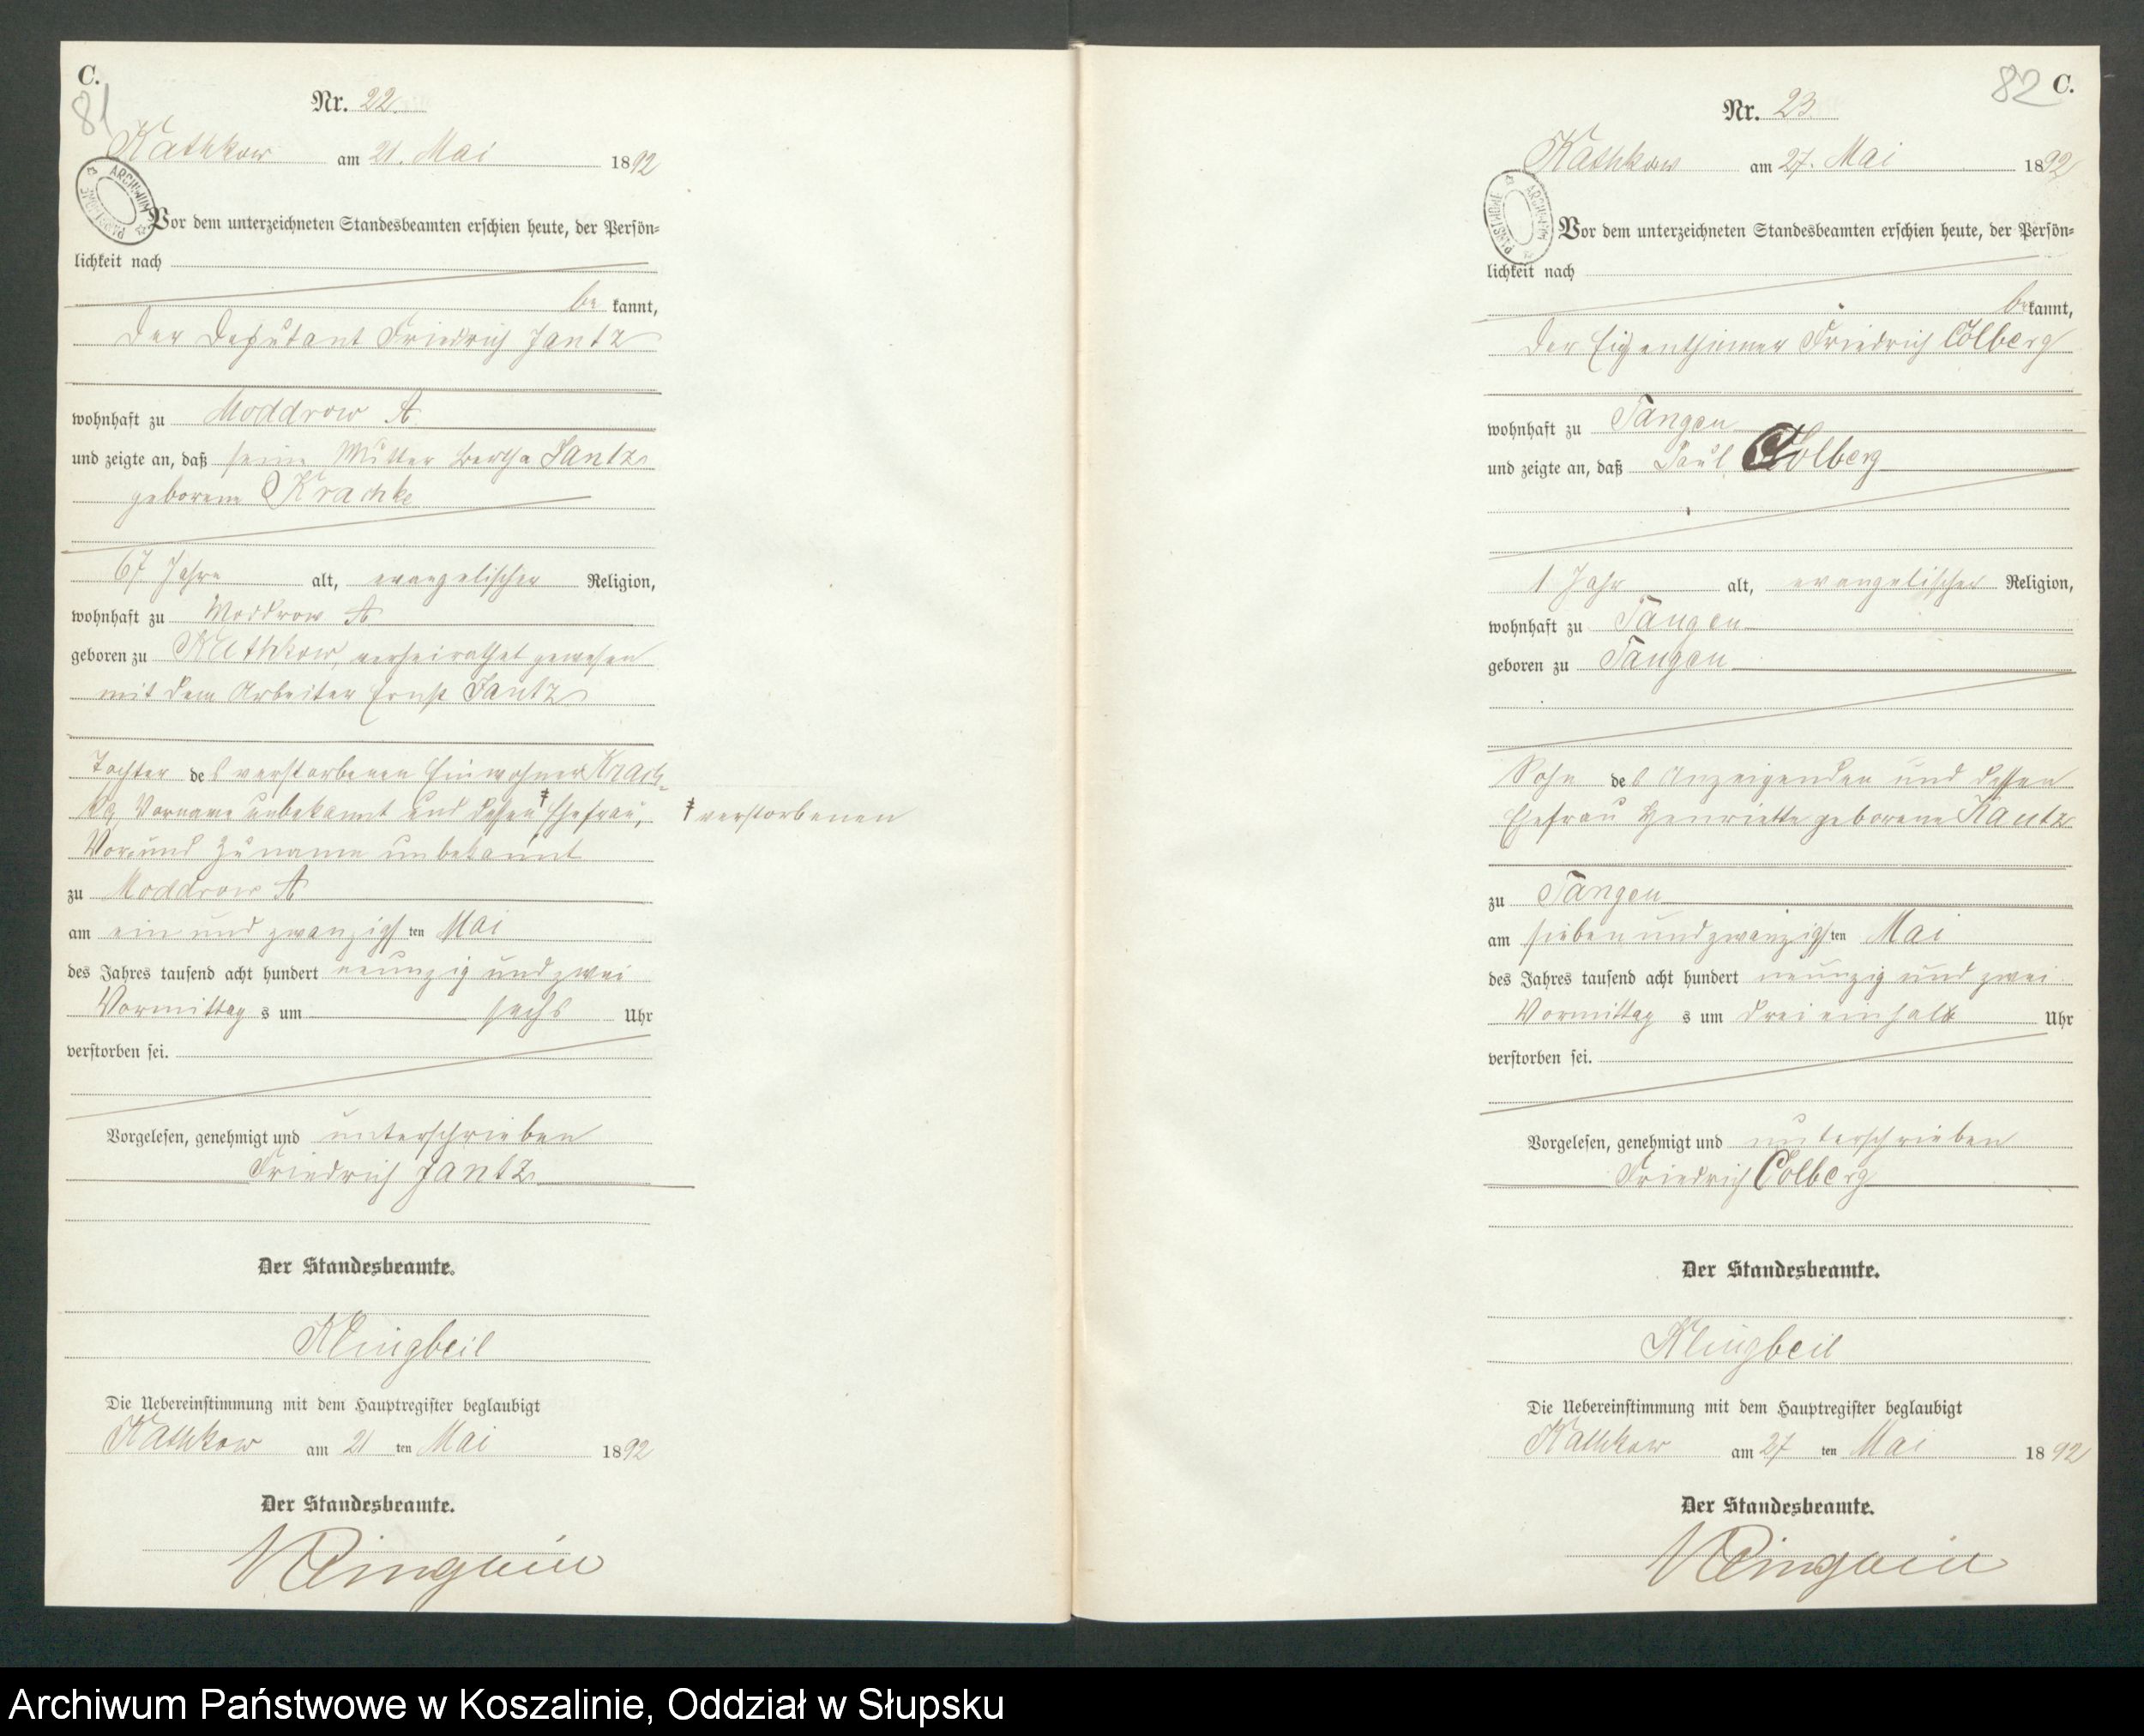 C.
81
Nr. 22.
Kathkow am 21. Mai 1892
ARCHIWUM PAŃSTWOWE
Vor dem unterzeichneten Standesbeamten erschien heute, der Persön-
lichkeit nach
be kannt,
der Deputant Friedrich Jantz
wohnhaft zu Moddrow A
und zeigte an, daß seine Mutter Bertha Jantz
geborene Krachke
67 Jahre alt, evangelischer Religion,
wohnhaft zu Moddrow A
geboren zu Kathkow, verheirathet gewesen
mit dem Arbeiter Ernst Jantz
Tochter des verstorbenen Einwohner Krach-
ke, Vorname unbekannt und dessen ‡ Ehefrau,
‡ verstorbenen
Vor- und Zuname unbekannt
zu Moddrow A
am ein und zwanzigsten Mai
des Jahres tausend acht hundert neunzig und zwei
Vormittags um sechs Uhr
verstorben sei.
Vorgelesen, genehmigt und unterschrieben
Friedrich Jantz
Der Standesbeamte.
Klingbeil
Die Uebereinstimmung mit dem Hauptregister beglaubigt
Kathkow am 21 ten Mai 1892
Der Standesbeamte.
Klingbeil
82 C.
Nr. 23.
Kathkow am 27. Mai 1892
ARCHIWUM PAŃSTWOWE
Vor dem unterzeichneten Standesbeamten erschien heute, der Persön-
lichkeit nach
bekannt,
der Eigenthümer Friedrich Colberg
wohnhaft zu Tangen
und zeigte an, daß Paul Colberg
1 Jahr alt, evangelischer Religion,
wohnhaft zu Tangen
geboren zu Tangen
Sohn des Anzeigenden und dessen
Ehefrau Henriette geborene Kautz
zu Tangen
am sieben und zwanzigsten Mai
des Jahres tausend acht hundert neunzig und zwei
Vormittags um drei einhalb Uhr
verstorben sei.
Vorgelesen, genehmigt und unterschrieben
Friedrich Colberg
Der Standesbeamte.
Klingbeil
Die Uebereinstimmung mit dem Hauptregister beglaubigt
Kathkow am 27 ten Mai 1892
Der Standesbeamte.
Klingbeil
Archiwum Państwowe w Koszalinie, Oddział w Słupsku